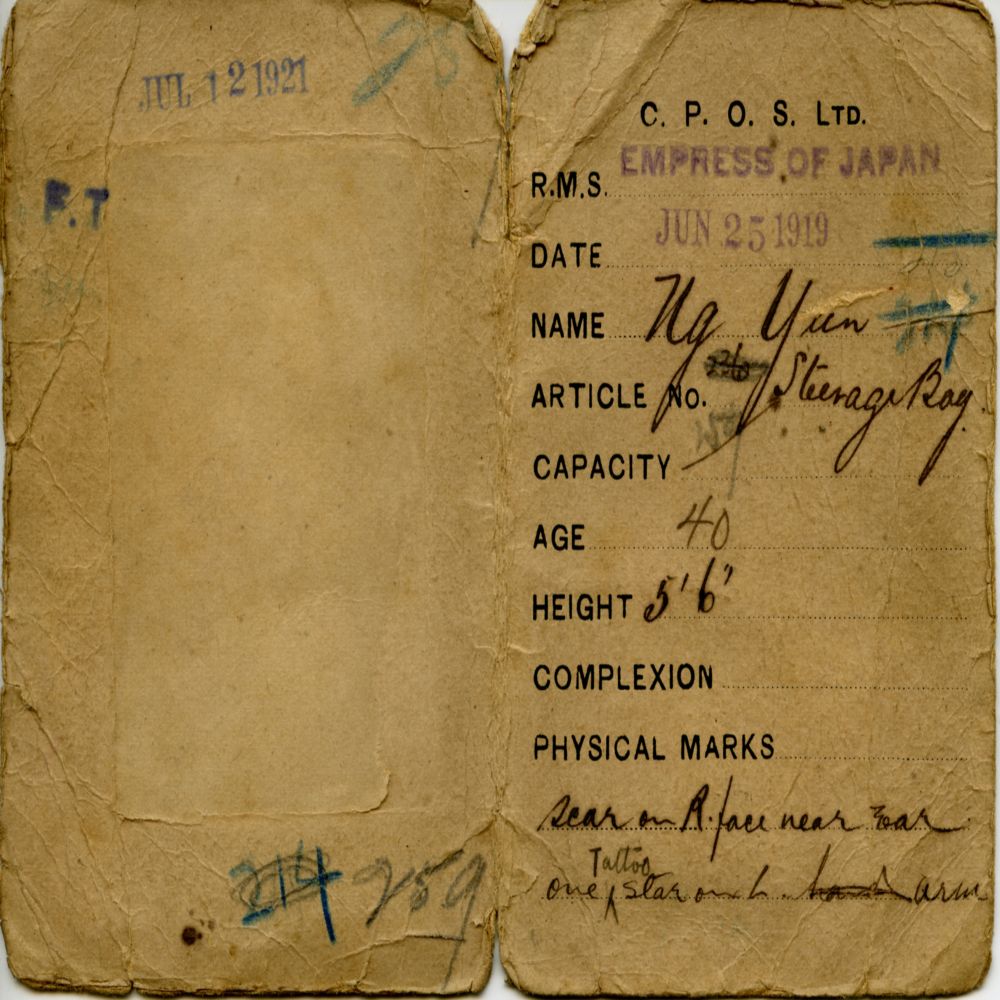 JUL 12 1921
F.T
214 259
C. P. O. S. LTD.
R.M.S. EMPRESS OF JAPAN
DATE JUN 25 1919
NAME Ng Yun
ARTICLE No. Steerage Boy
CAPACITY
AGE 40
HEIGHT 5'6"
COMPLEXION
PHYSICAL MARKS
scar on R. face near ear
one Tattoo star on L. hand arm